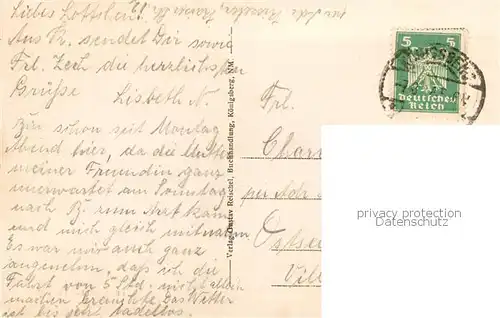 Liebes Lottchen!
Aus K. sendet Dir sowie
Frl. Zech die herzlichsten
Grüße Lisbeth N.
Bin schon seit Montag
Abend hier, da die Mutter
meiner Freundin ganz
unerwartet am Sonntag
nach B. zum Arzt kam
und mich gleich mitnahm.
Es war mir auch ganz
angenehm, daß ich die
Fahrt von 5 Std. nicht allein
machen brauchte. Das Wetter
ist bis jetzt tadellos.
Verlag Gustav Reischel, Buchhandlung, Königsberg, NM.
5 5
Deutsches
Reich
Frl.
per Adr.
Ostsee
Vill
privacy protection
Datenschutz